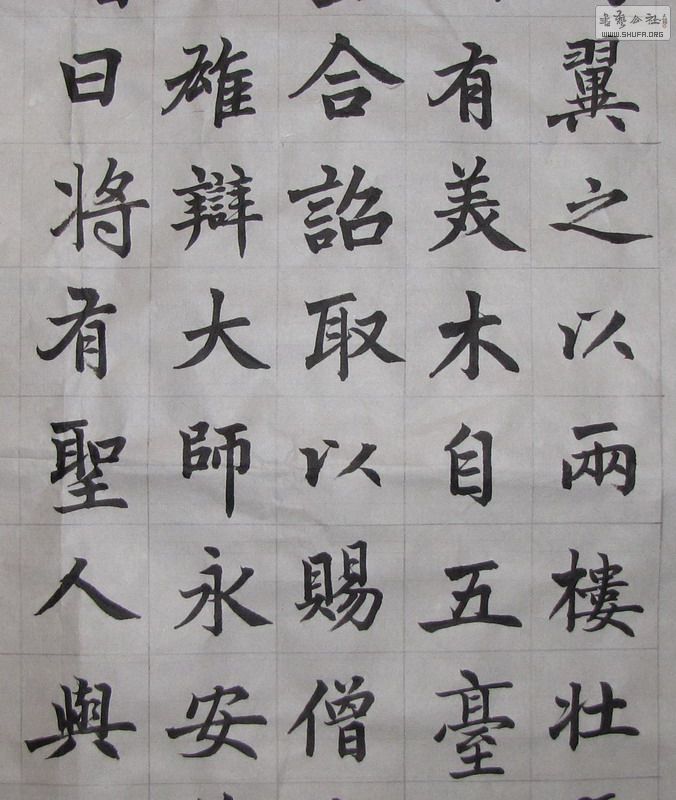 翼之以兩樓壯
有美木自五臺
合詔取以賜僧
雄辯大師永安
曰將有聖人興
WWW.SHUFA.ORG